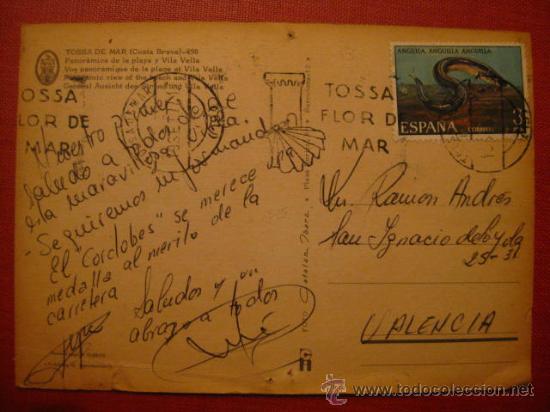 TOSSA DE MAR (Costa Brava)-498
Panorámica de la playa y Vila Vella
Vue panoramique de la plage et Vila Vella
Panoramic view of the beach and Vila Vella
General Ansicht des Strand und Vila Vella
TOSSA
FLOR DE
MAR
Nuestro primer
saludo a todos desde
esta maravillosa villa.
- Seguiremos informando
El "Cordobes" se merece una
medalla al merito de la
carretera
Saludos y un
abrazo a todos
ANGUILA ANGUILLA ANGUILLA
ESPAÑA
CORREOS
TOSSA
FLOR DE
MAR
Ramon Andres
San Ignacio de Loyola
25-3
VALENCIA
todocoleccion
www.todocoleccion.net